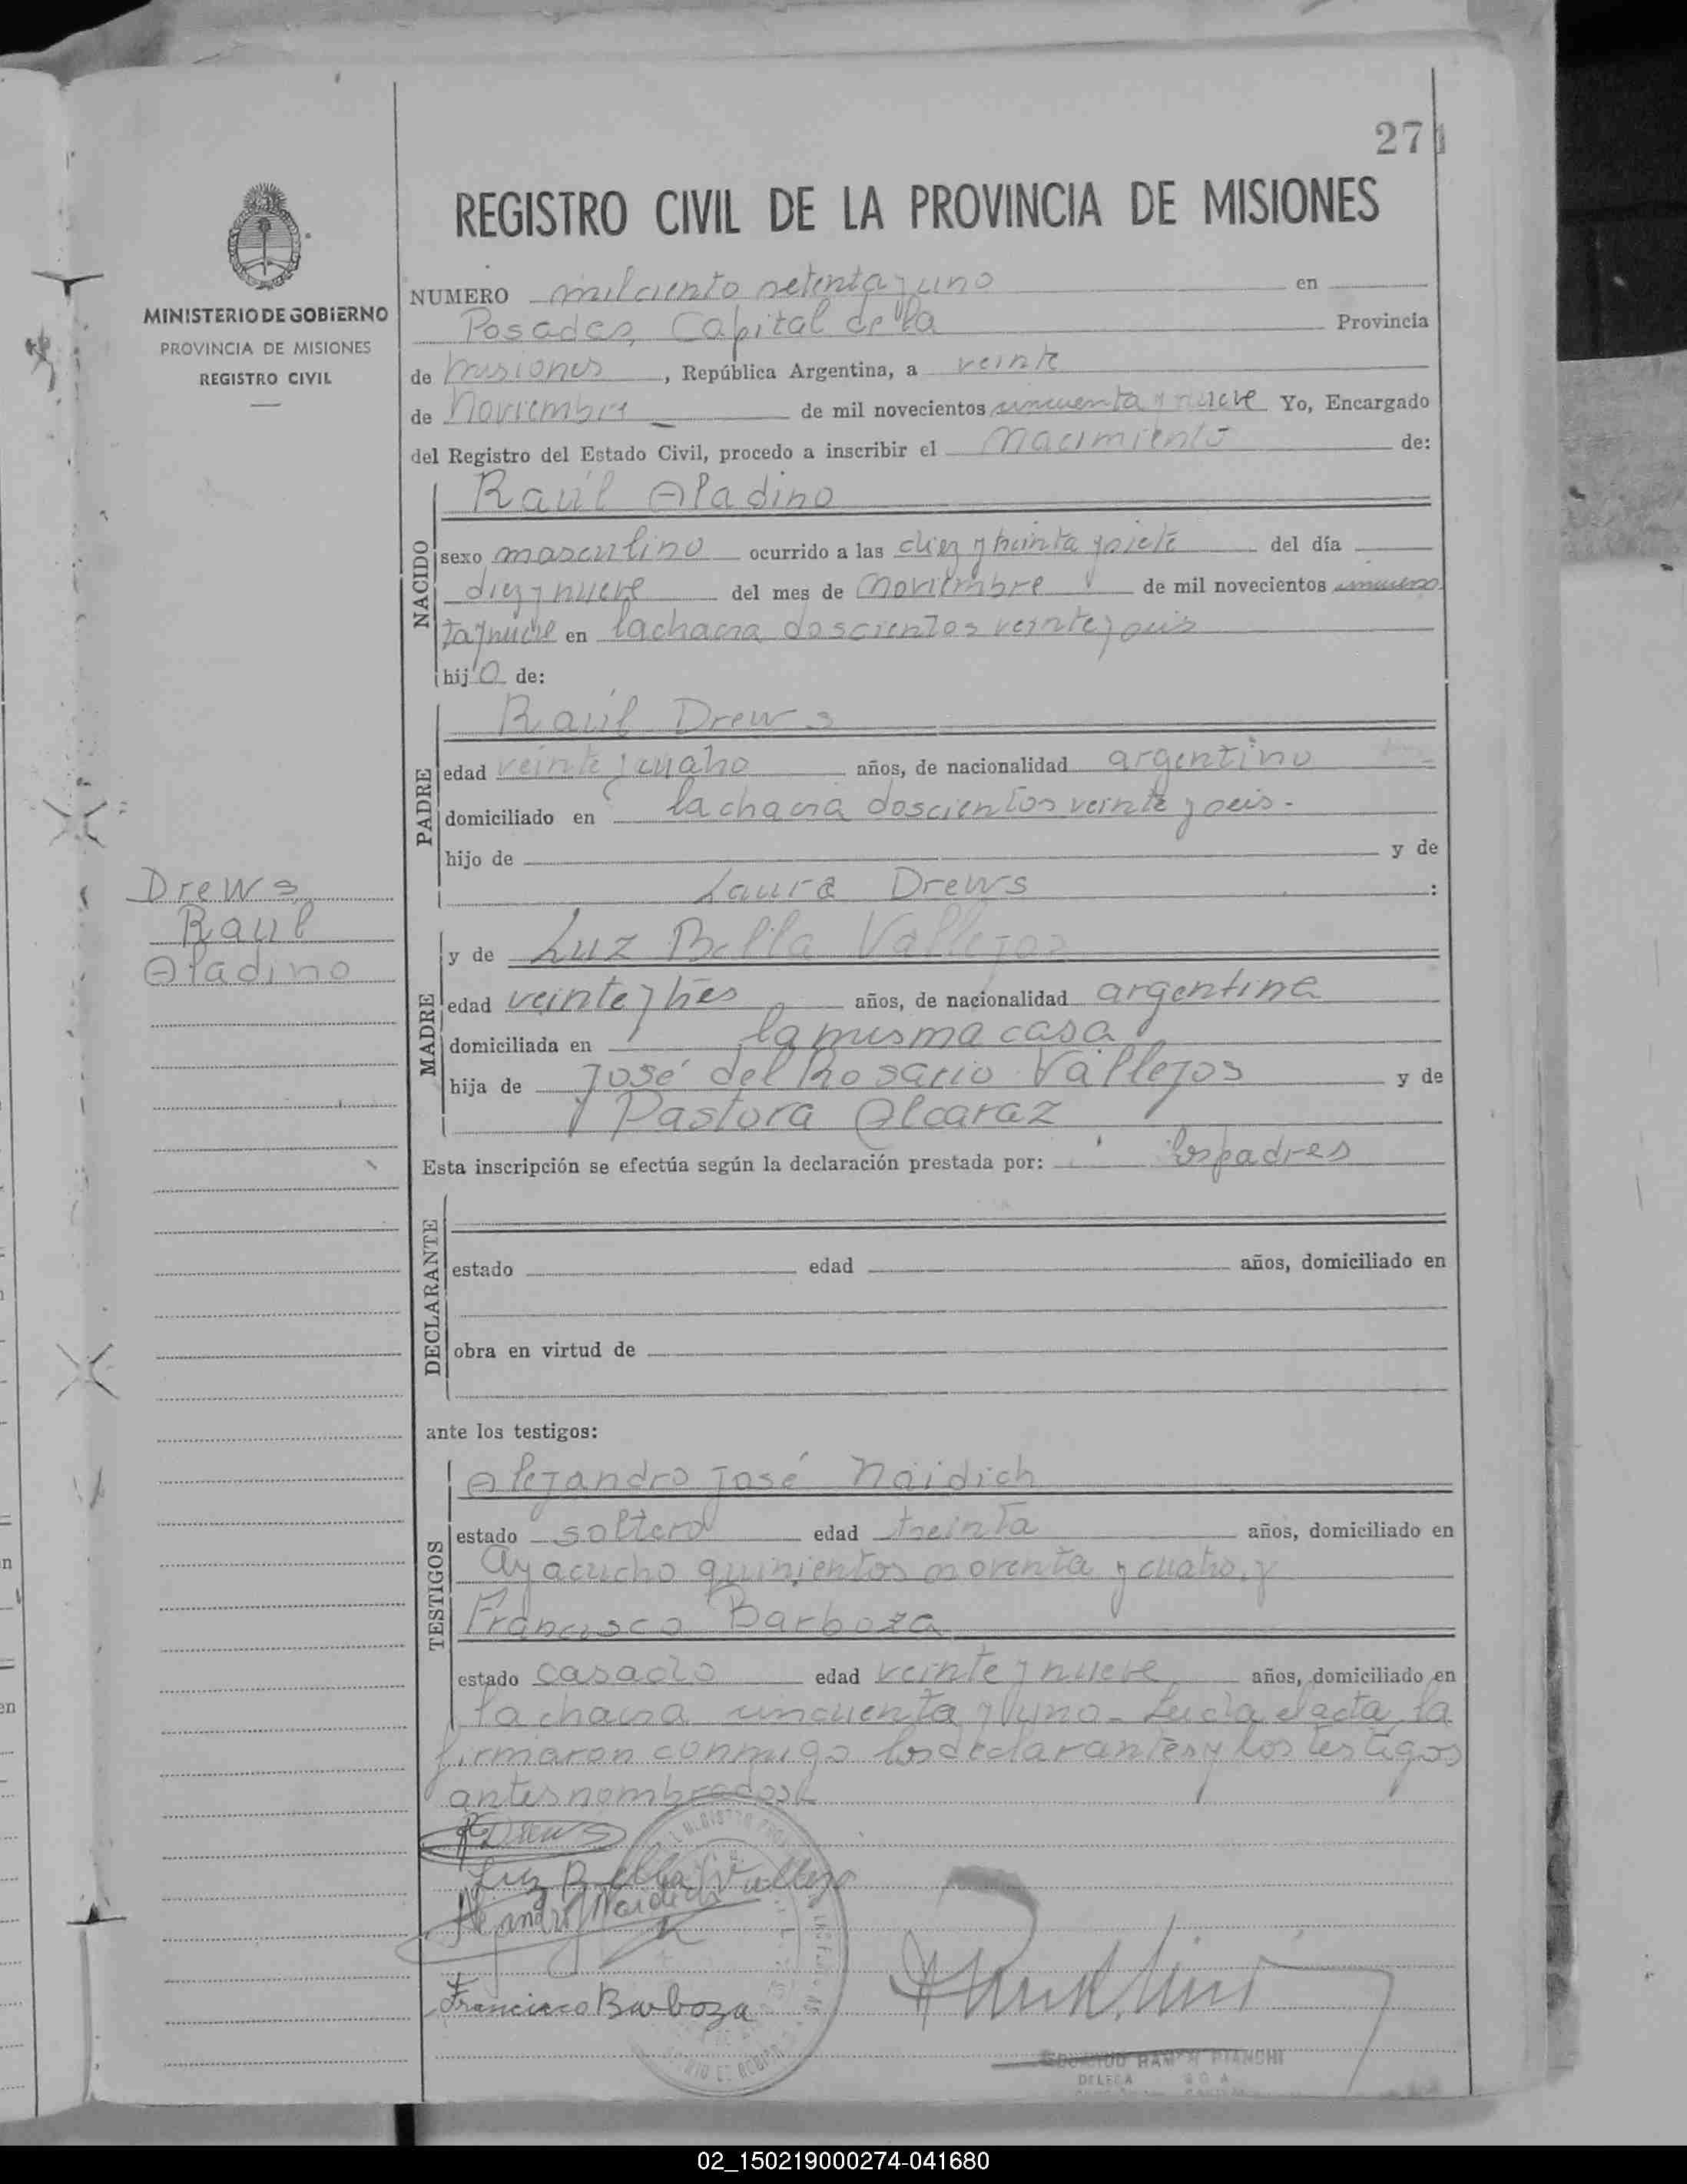 27
REGISTRO CIVIL DE LA PROVINCIA DE MISIONES
MINISTERIO DE GOBIERNO
PROVINCIA DE MISIONES
REGISTRO CIVIL
NUMERO mil ciento setenta y uno en
Posadas, Capital de la Provincia
de Misiones, República Argentina, a veinte
de Noviembre de mil novecientos cincuenta y nueve Yo, Encargado
del Registro del Estado Civil, procedo a inscribir el nacimiento de:
NACIDO
Raúl Aladino
sexo masculino ocurrido a las diez y treinta y siete del día
diez y nueve del mes de noviembre de mil novecientos cincuen
ta y nueve en la chacra doscientos veinte y seis
hijo de:
PADRE
Raúl Drews
edad veinte y cuatro años, de nacionalidad argentino
domiciliado en la chacra doscientos veinte y seis.-
hijo de y de
Laura Drews :
Drews
Raul
Aladino
MADRE
y de Luz Bella Vallejos
edad veinte y tres años, de nacionalidad argentina
domiciliada en la misma casa
hija de José del Rosario Vallejos y de
Pastora Alcaraz
Esta inscripción se efectúa según la declaración prestada por: los padres
DECLARANTE
estado edad años, domiciliado en
obra en virtud de
ante los testigos:
TESTIGOS
Alejandro José Naidich
estado soltero edad treinta años, domiciliado en
Ayacucho quinientos noventa y cuatro, y
Francisco Barboza
estado casado edad veinte y nueve años, domiciliado en
la chacra cincuenta y uno - Leida el acta, la
firmaron conmigo los declarantes y los testigos
antes nombrados
R Drews
Luz Bella Vallejo
Alejandro J Naidich
Francisco Barboza
RAMON BIANCHI
02_150219000274-041680